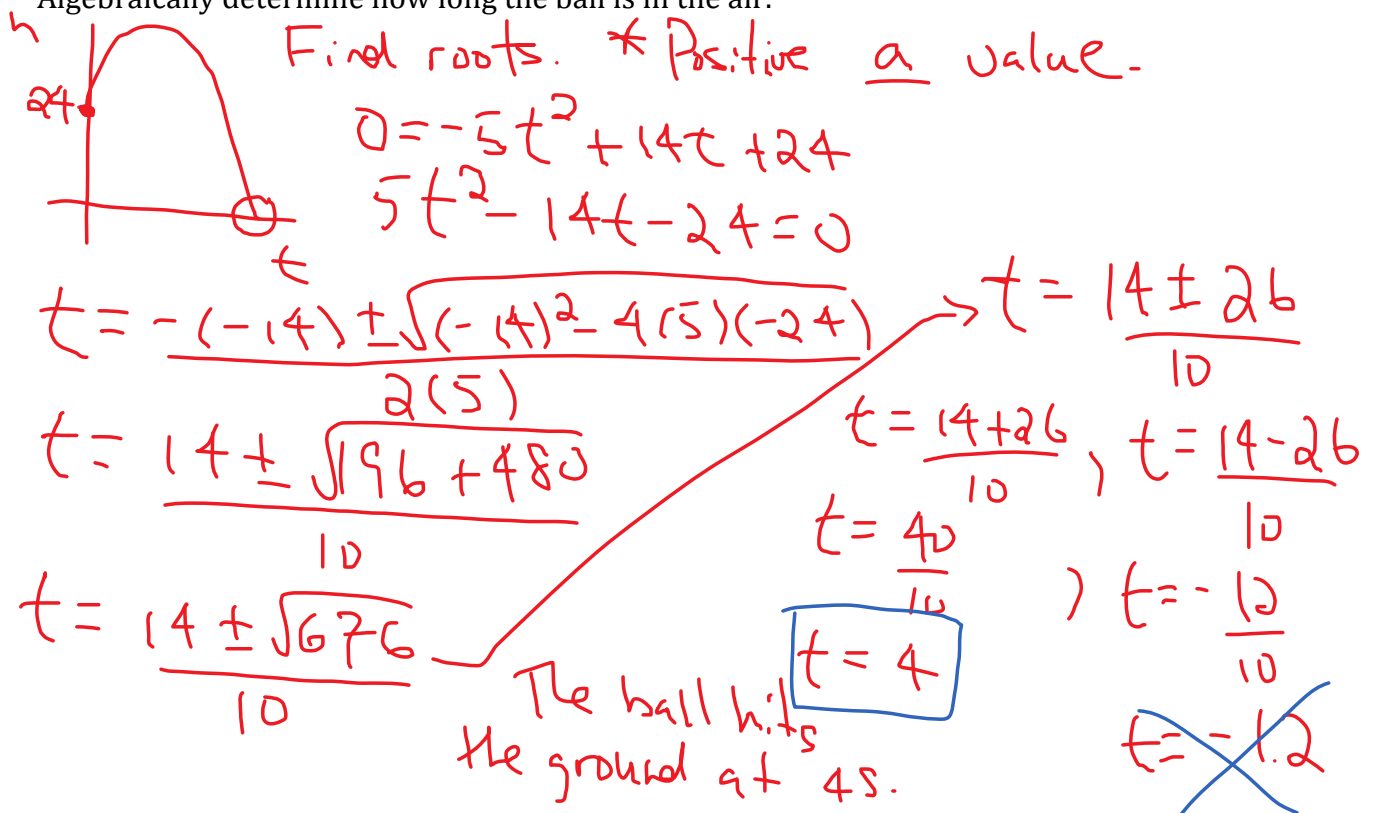 Algebraically determine how long the ball is in the air?
h
24
t
Find roots. * Positive a value.
0 = -5t² + 14t + 24
5t² - 14t - 24 = 0
t = -(-14) ± √((-14)² - 4(5)(-24)) / 2(5)
t = 14 ± √(196 + 480) / 10
t = 14 ± √676 / 10
t = 14 ± 26 / 10
t = 14+26 / 10 , t = 14-26 / 10
t = 40 / 10 , t = -12 / 10
t = 4
t = -1.2
The ball hits
the ground at 4s.